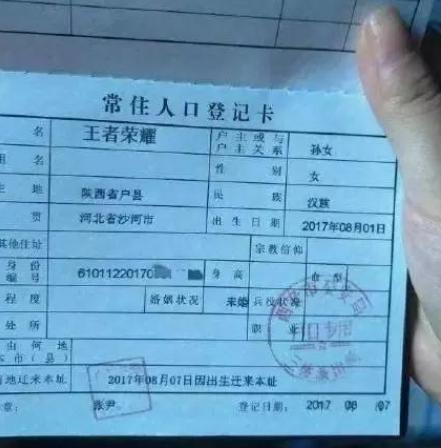 常住人口登记卡
名 王者荣耀 户主或与户主关系 孙女
用名 性别 女
生地 陕西省户县 民族 汉族
贯 河北省沙河市 出生日期 2017年08月01日
其他住址 宗教信仰
身份编号 6101122017 身高 血型
程度 婚姻状况 未婚 兵役状况
处所 职业
由何地
本市(县)
地迁来本址 2017年08月07日因出生迁来本址
章: 张尹 登记日期: 2017 08 07